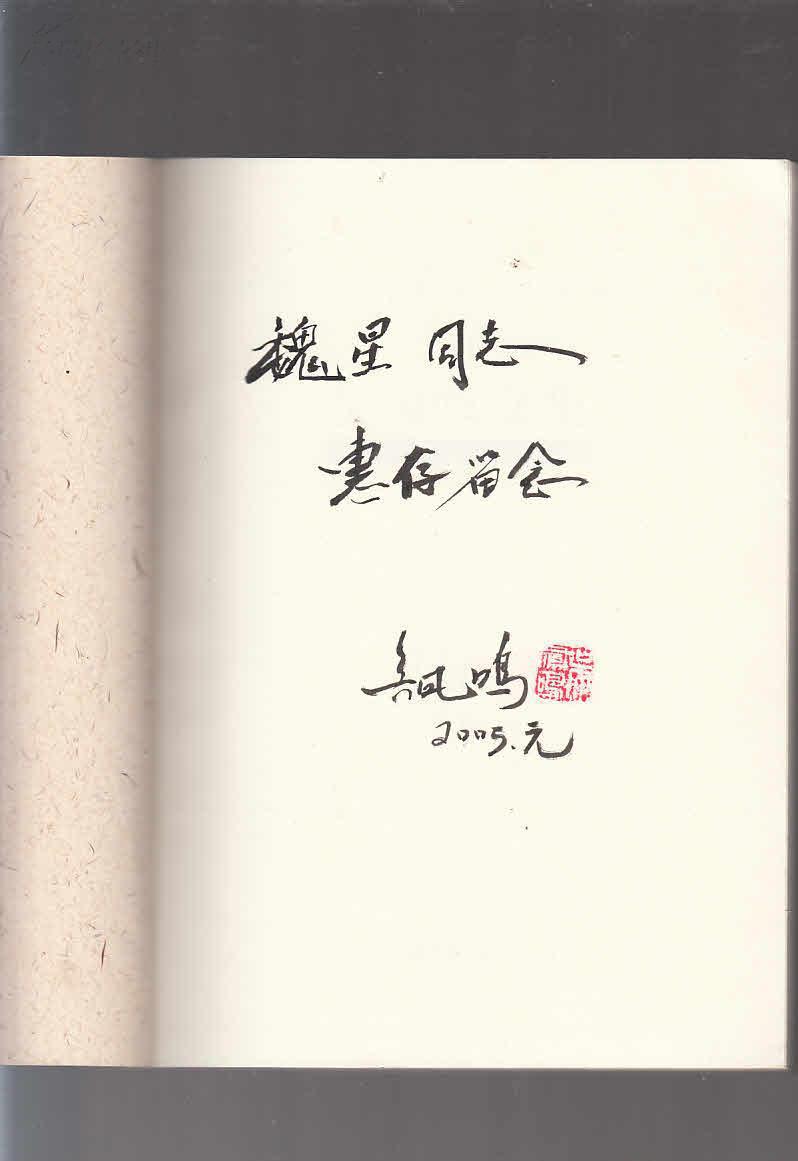 魏星 同志
惠存留念
鸣
2005.元